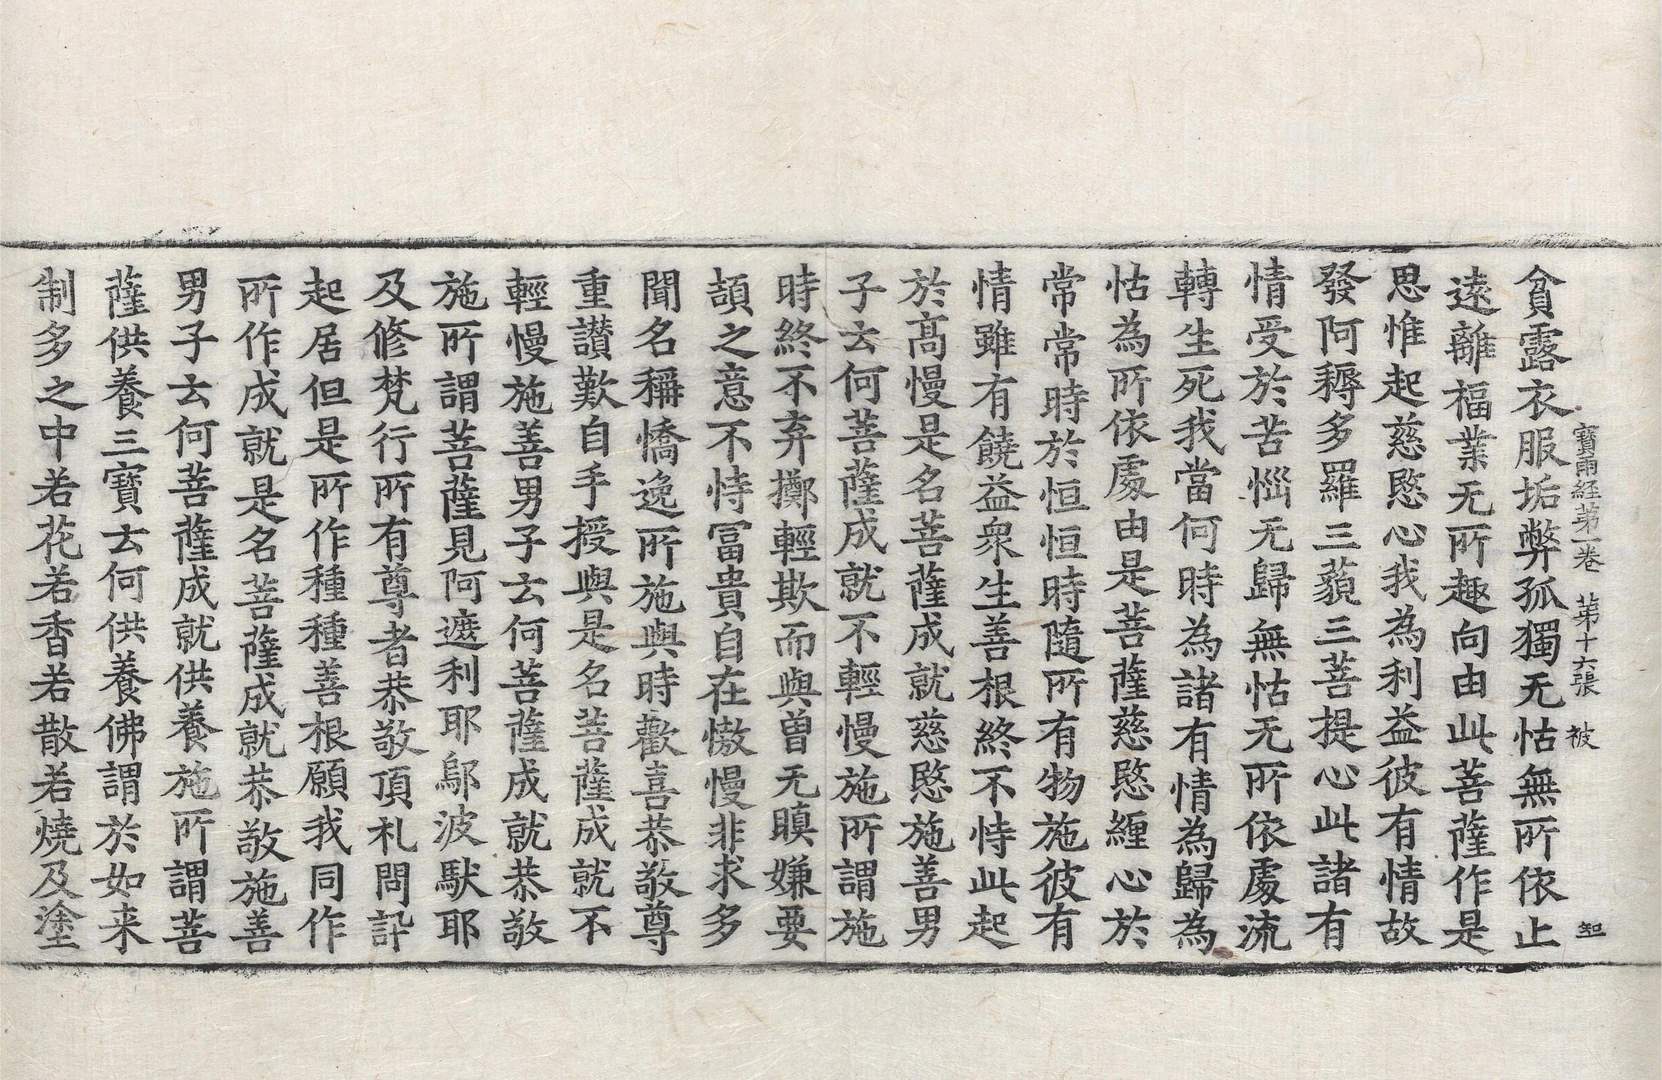 寶雨経第一卷　第十六張　被　知
貧露衣服垢弊孤獨无怙無所依止
遠離福業无所趣向由此菩薩作是
思惟起慈愍心我為利益彼有情故
發阿耨多羅三藐三菩提心此諸有
情受於苦惱无歸無怙无所依處流
轉生死我當何時為諸有情為歸為
怙為所依處由是菩薩慈愍纏心於
常常時於恒恒時隨所有物施彼有
情雖有饒益衆生善根終不恃此起
於髙慢是名菩薩成就慈愍施善男
子云何菩薩成就不輕慢施所謂施
時終不弃擲輕欺而與曽无瞋嫌要
頡之意不恃冨貴自在慠慢非求多
聞名稱憍逸所施與時歡喜恭敬尊
重讃歎自手授與是名菩薩成就不
輕慢施善男子云何菩薩成就恭敬
施所謂菩薩見阿遮利耶鄔波馱耶
及修梵行所有尊者恭敬頂礼問訊
起居但是所作種種善根願我同作
所作成就是名菩薩成就恭敬施善
男子云何菩薩成就供養施所謂菩
薩供養三寶云何供養佛謂於如来
制多之中若花若香若散若燒及塗